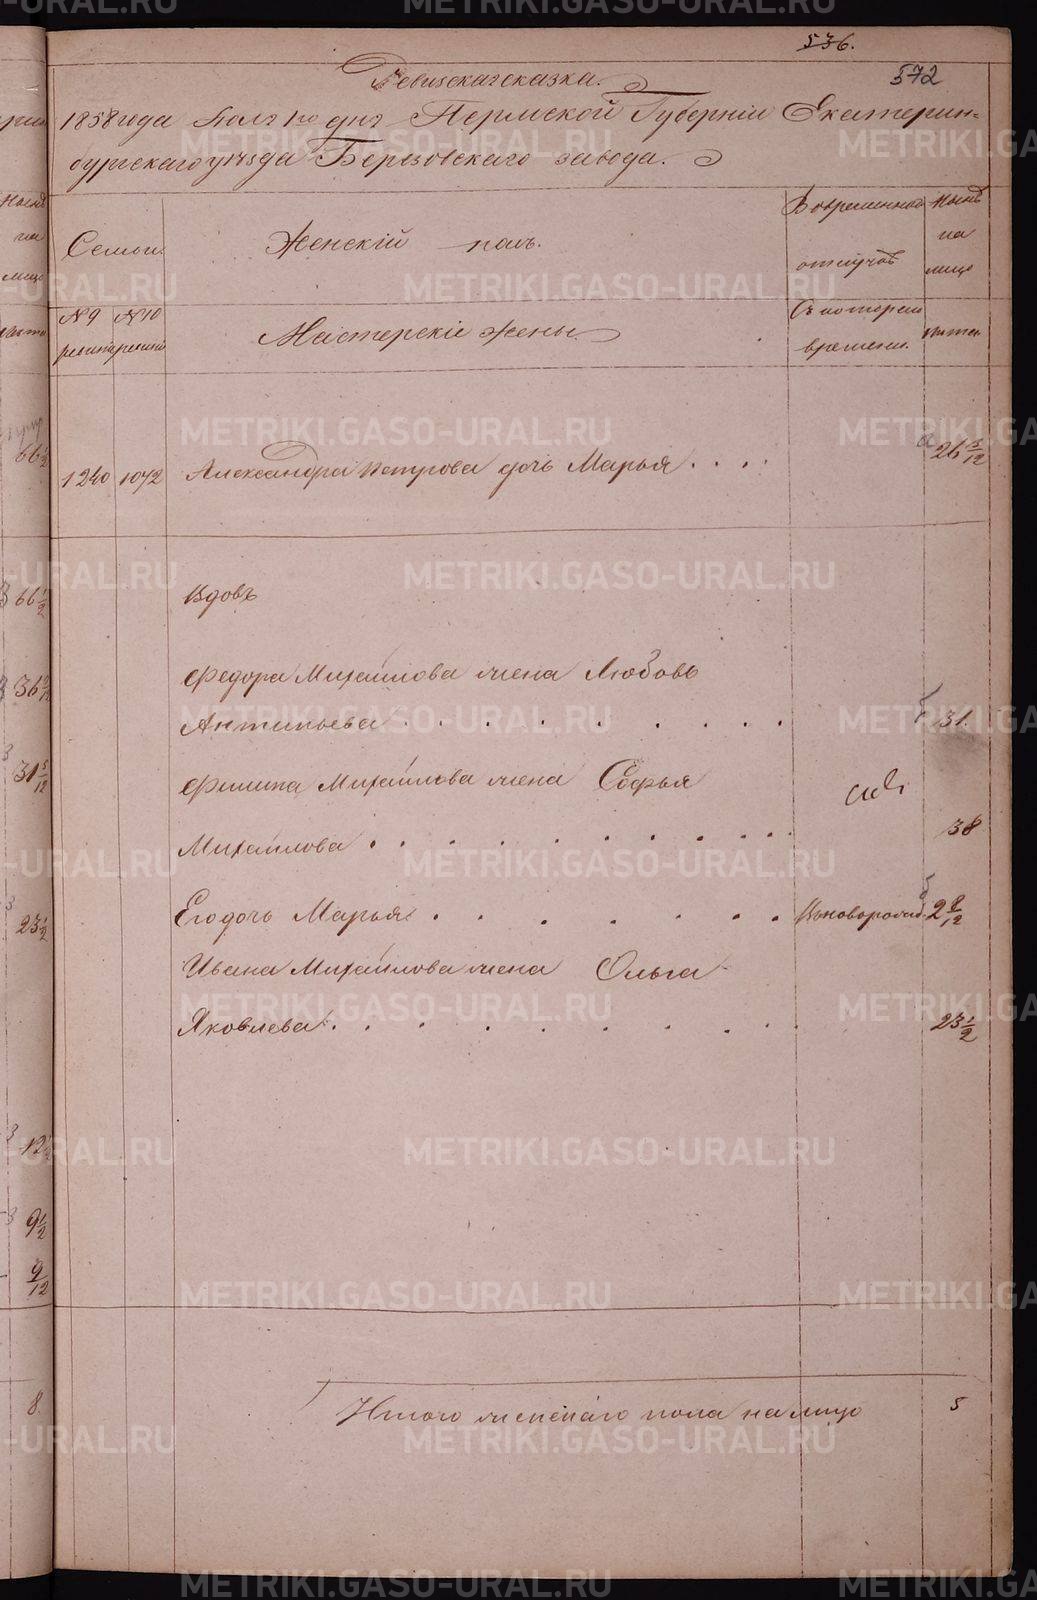 536.
572
Ревизская сказка.
1858 года Іюля 1го дня Пермской Губерніи Екатерин-
бургскаго уѣзда Березовскаго завода.
Семьи.
Женскій полъ.
Во временной
отлучкѣ
Нынѣ
на
лицо
№ 9
ревизіи
№ 10
ревизіи
Мастерскіе жены.
Съ котораго
времени.
Лѣта
1240 1072 Александра Петрова дочь Марья . . . . 26 5/12
Вдовъ
Федора Михайлова жена Любовь
Антипьева . . . . . . . . . 31.
Филипа Михайлова жена Софья
Михайлова . . . . . . . . . . 38
Его дочь Марья . . . . . . . Вновьрожд. 2 8/12
Ивана Михайлова жена Ольга
Яковлева . . . . . . . . . 23 1/2
Итого женскаго пола на лицо 5
66 1/2
31 5/12
23 1/2
9 1/2
9/12
8.
METRIKI.GASO-URAL.RU